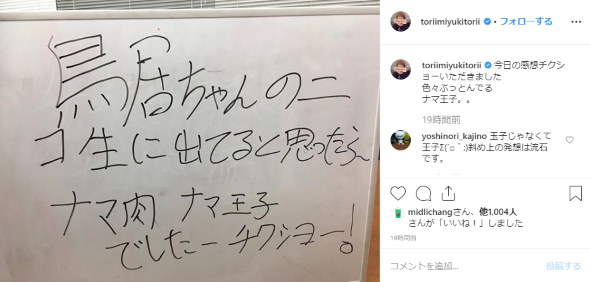 鳥居ちゃんのニ
コ生に出てると思ったら、
ナマ肉 ナマ王子
でしたー チクショー!
toriimiyukitorii • フォローする
toriimiyukitorii 今日の感想チクシ
ョーいただきました
色々ぶっとんでる
ナマ王子。。
19時間前
yoshinori_kajino 玉子じゃなくて
王子Σ(´□｀;)斜め上の発想は流石
です。
midlichangさん、他1,004人
さんが「いいね！」しました
19時間前
コメントを追加...
投稿する